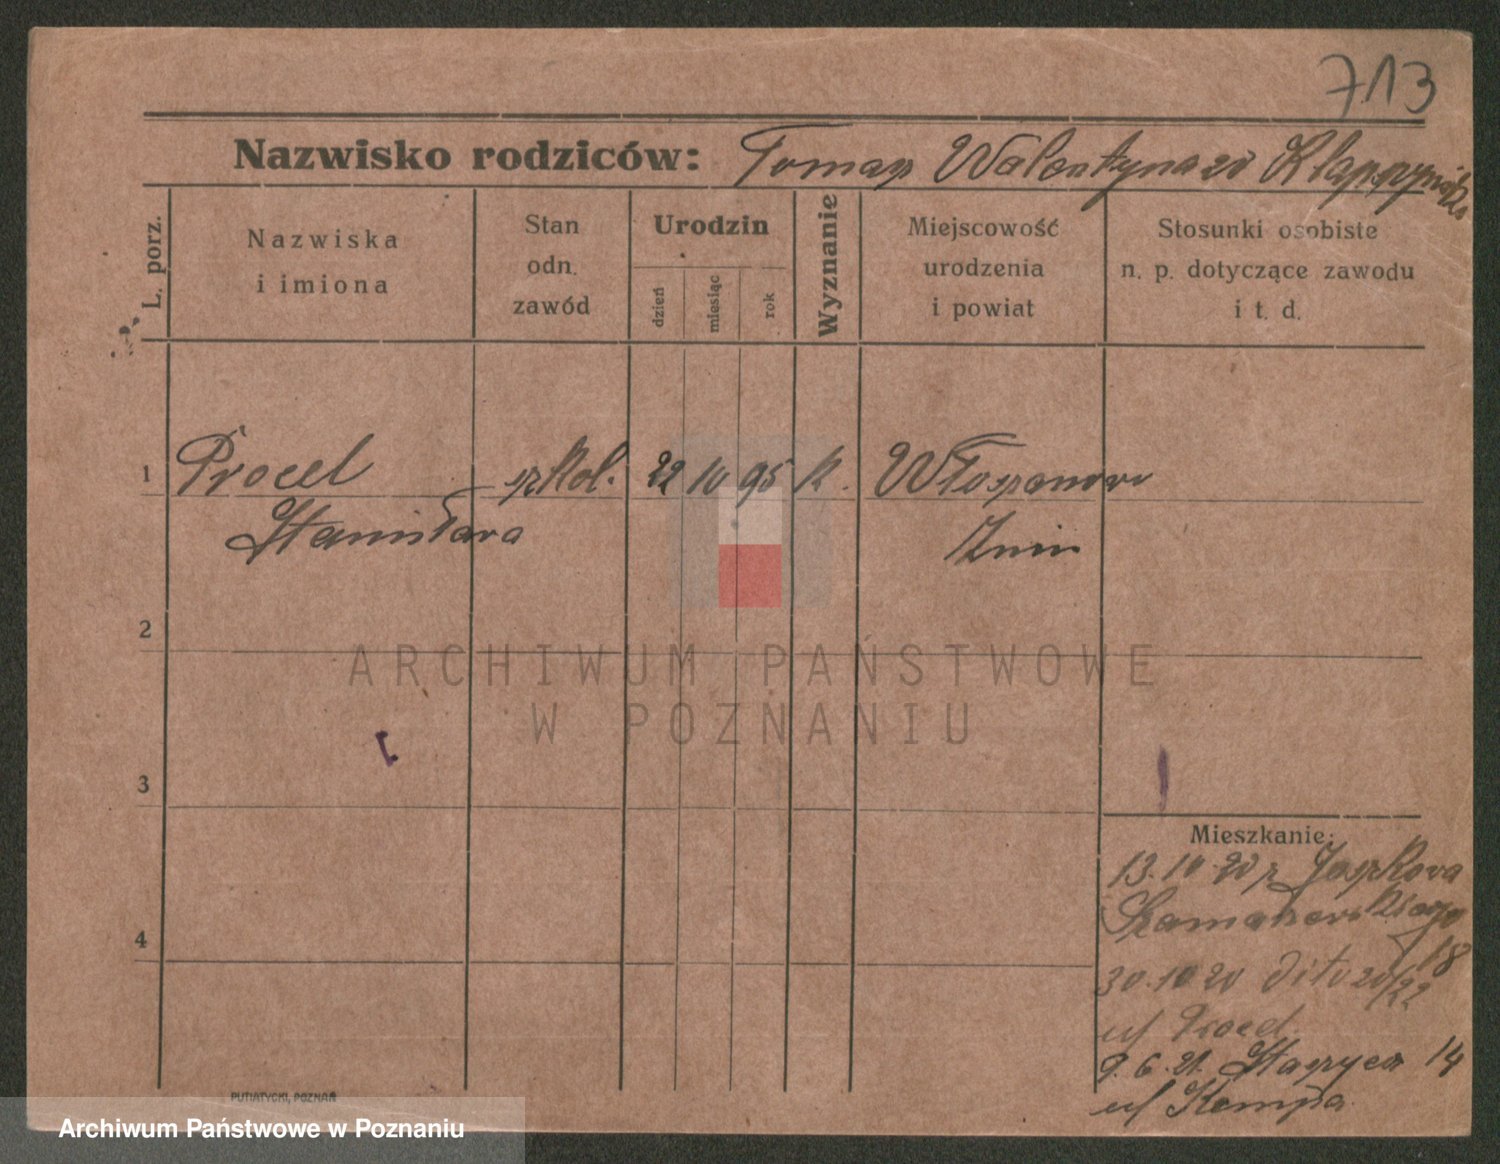 713
Nazwisko rodziców: Tomasz Walentyna zd
L. porz.
Nazwiska
i imiona
Stan
odn.
zawód
Urodzin
dzień
miesiąc
rok
Wyznanie
Miejscowość
urodzenia
i powiat
Stosunki osobiste
n. p. dotyczące zawodu
i t. d.
1 Procel szkol. 22 10 95 k.
Stanisława Żnin
2
3
4
Mieszkanie:
13.10.20 z
18
30.10.20 dito 20/22
9.6.21. Staszyca 14
Kempa
PUTIATYCKI, POZNAŃ
ARCHIWUM PAŃSTWOWE
W POZNANIU
Archiwum Państwowe w Poznaniu